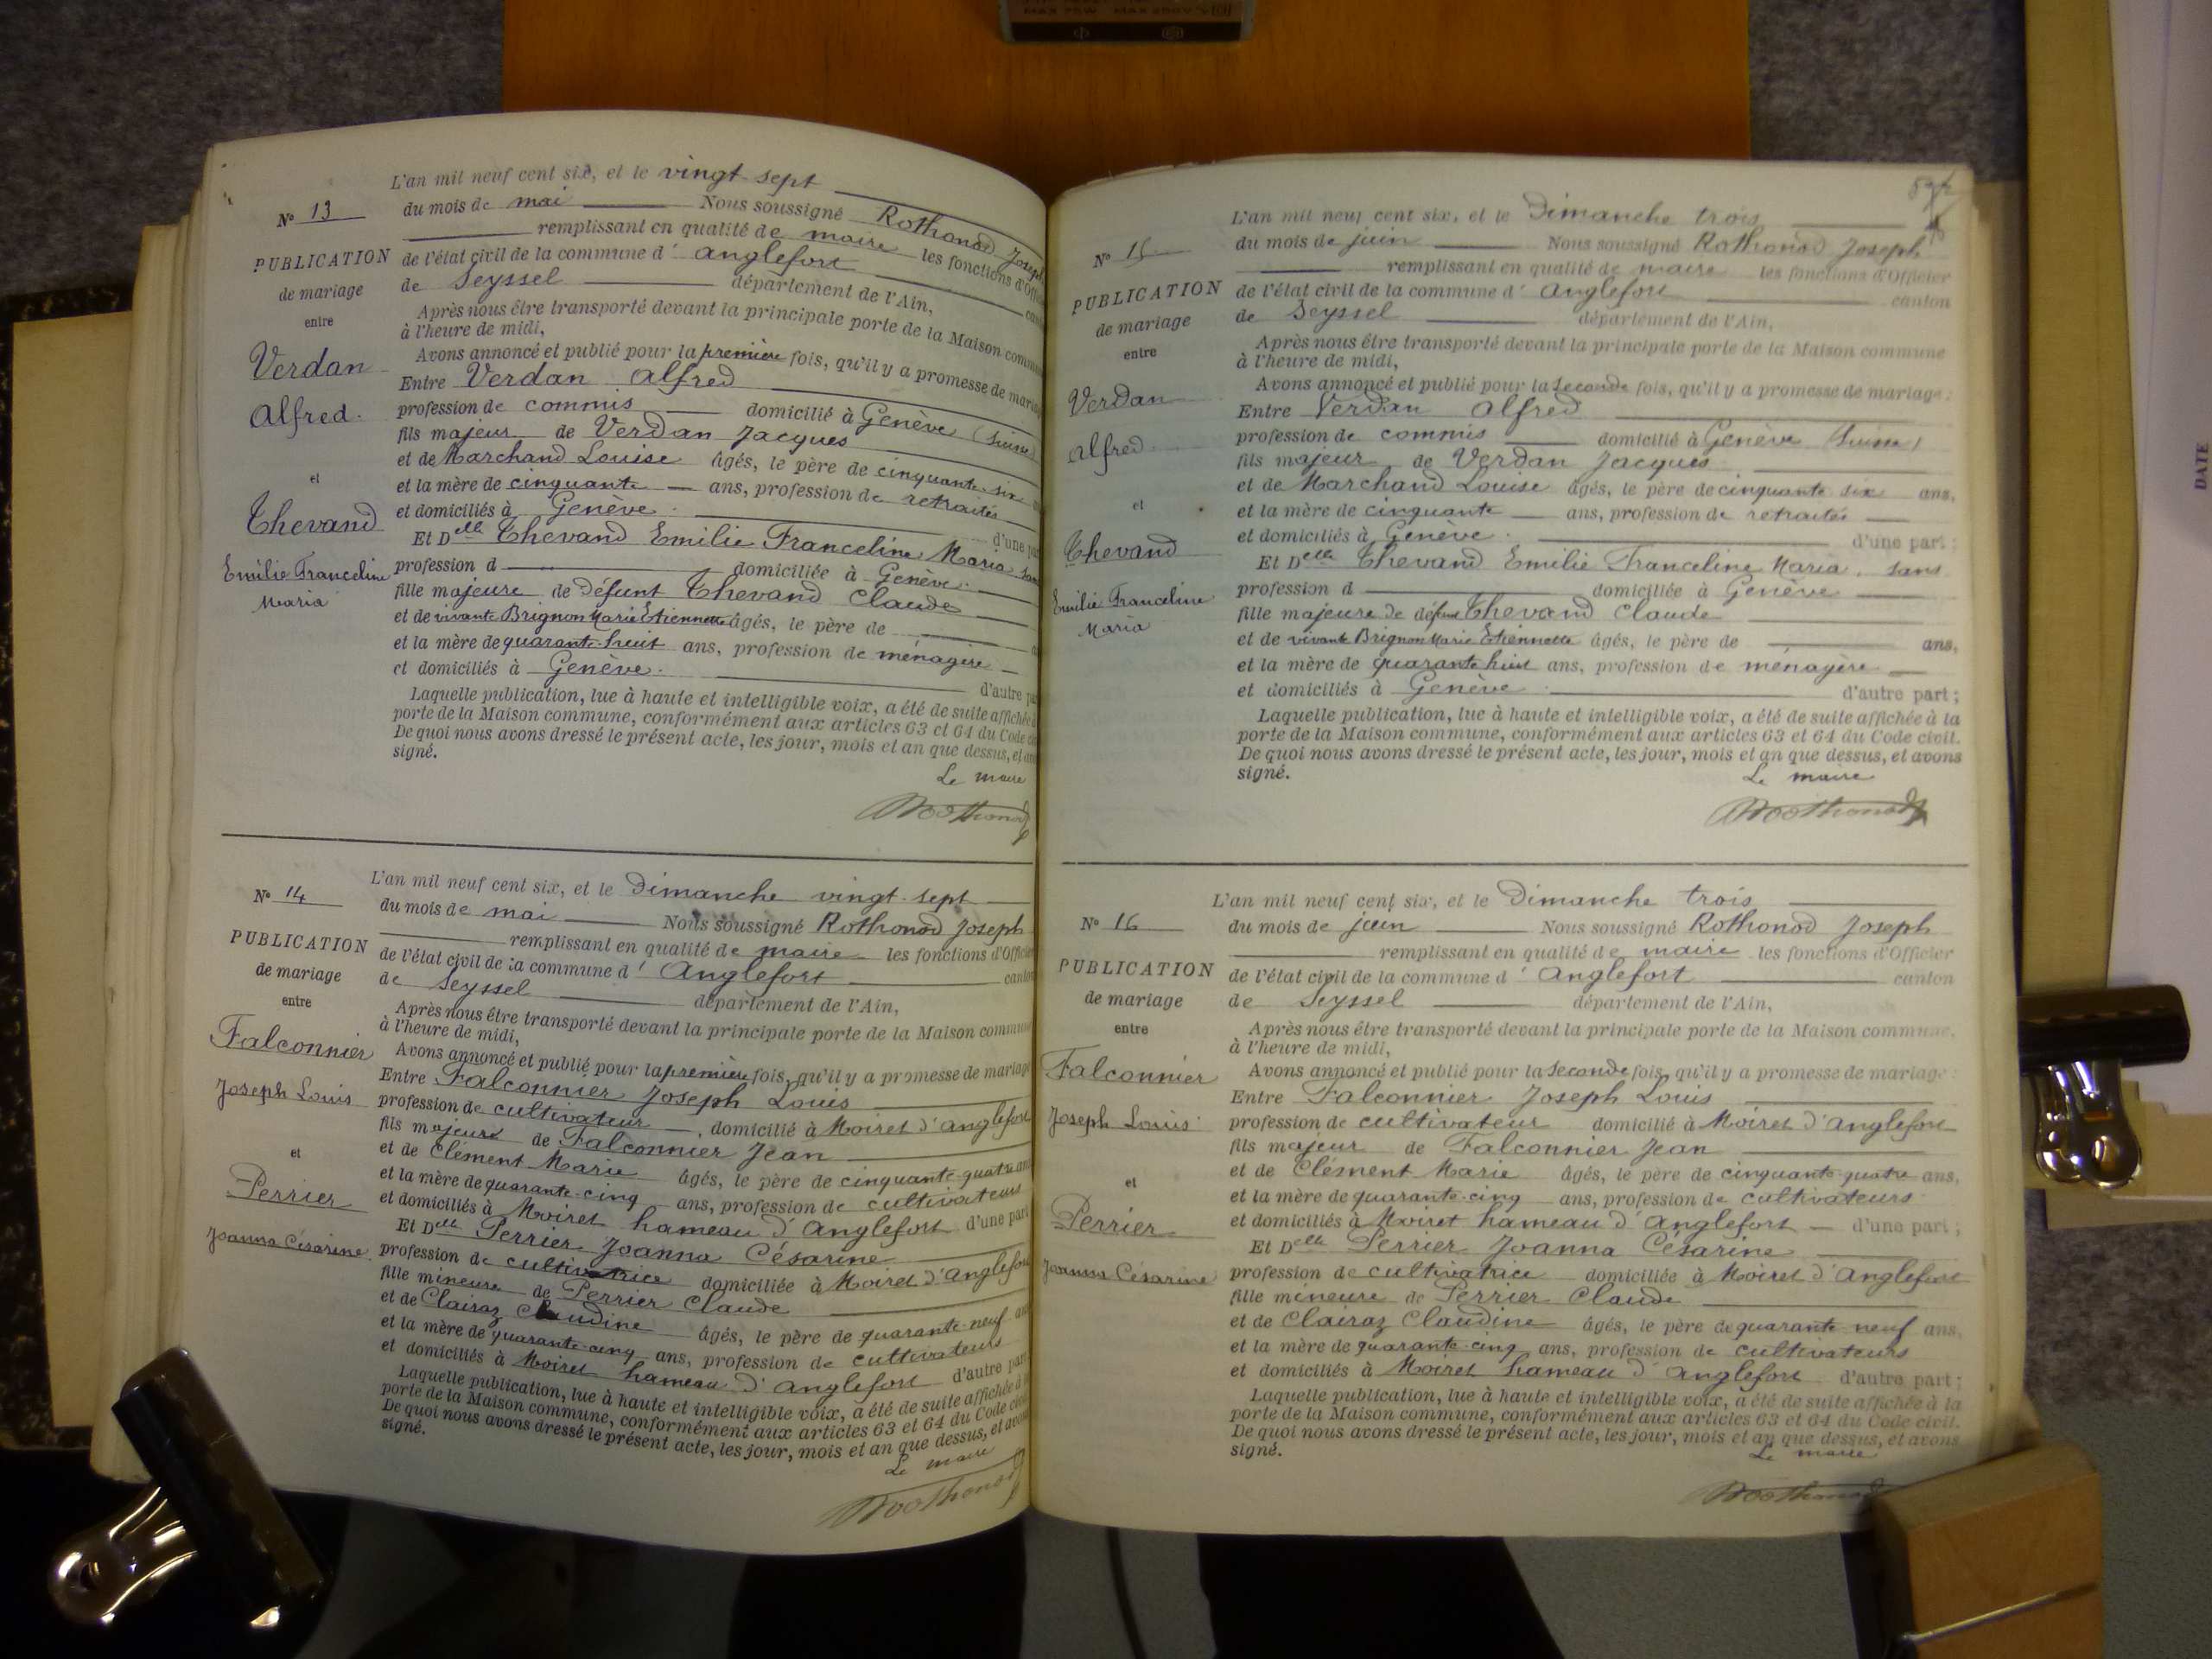 N° 13
PUBLICATION
de mariage
entre
Verdan
Alfred.
et
Thevand
Emilie Franceline
Maria
L'an mil neuf cent six, et le vingt-sept
du mois de mai Nous soussigné Rothonod Joseph
remplissant en qualité de maire les fonctions d'Offi
de l'état civil de la commune d' Anglefort can
de Seyssel département de l'Ain,
Après nous être transporté devant la principale porte de la Maison commu
à l'heure de midi,
Avons annoncé et publié pour la première fois, qu'il y a promesse de maria
Entre Verdan Alfred
profession de commis domicilié à Genève (Suisse
fils majeur de Verdan Jacques
et de Marchand Louise âgés, le père de cinquante-six
et la mère de cinquante ans, profession de retraités
et domiciliés à Genève. d'une par
Et Delle Thevand Emilie Franceline Maria sans
profession d domiciliée à Genève.
fille majeure de défunt Thevand Claude
et de vivante Brignon Marie Etiennette âgés, le père de
et la mère de quarante-huit ans, profession de ménagère
et domiciliés à Genève. d'autre par
Laquelle publication, lue à haute et intelligible voix, a été de suite affichée à
porte de la Maison commune, conformément aux articles 63 et 64 du Code ci
De quoi nous avons dressé le présent acte, les jour, mois et an que dessus, et av
signé.
Le maire
Rothonod
N° 14
PUBLICATION
de mariage
entre
Falconnier
Joseph Louis
et
Perrier
Joanna Césarine
L'an mil neuf cent six, et le Dimanche vingt-sept
du mois de mai Nous soussigné Rothonod Joseph
remplissant en qualité de maire les fonctions d'Officier
de l'état civil de la commune d' Anglefort canton
de Seyssel département de l'Ain,
Après nous être transporté devant la principale porte de la Maison commune
à l'heure de midi,
Avons annoncé et publié pour la première fois, qu'il y a promesse de mariage
Entre Falconnier Joseph Louis
profession de cultivateur domicilié à Moiret d'Anglefort
fils majeur de Falconnier Jean
et de Clément Marie âgés, le père de cinquante-quatre ans
et la mère de quarante-cinq ans, profession de cultivateurs
et domiciliés à Moiret hameau d'Anglefort d'une part
Et Delle Perrier Joanna Césarine
profession de cultivatrice domiciliée à Moiret d'Anglefort
fille mineure de Perrier Claude
et de Clairaz Claudine âgés, le père de quarante-neuf ans
et la mère de quarante-cinq ans, profession de cultivateurs
et domiciliés à Moiret hameau d'Anglefort d'autre part
Laquelle publication, lue à haute et intelligible voix, a été de suite affichée à
porte de la Maison commune, conformément aux articles 63 et 64 du Code civil
De quoi nous avons dressé le présent acte, les jour, mois et an que dessus, et avons
signé.
Le maire
Rothonod
N° 15
PUBLICATION
de mariage
entre
Verdan
Alfred
et
Thevand
Emilie Franceline
Maria
L'an mil neuf cent six, et le Dimanche trois
du mois de juin Nous soussigné Rothonod Joseph
remplissant en qualité de maire les fonctions d'Officier
de l'état civil de la commune d' Anglefort canton
de Seyssel département de l'Ain,
Après nous être transporté devant la principale porte de la Maison commune
à l'heure de midi,
Avons annoncé et publié pour la seconde fois, qu'il y a promesse de mariage:
Entre Verdan Alfred
profession de commis domicilié à Genève (Suisse)
fils majeur de Verdan Jacques
et de Marchand Louise âgés, le père de cinquante six ans,
et la mère de cinquante ans, profession de retraités
et domiciliés à Genève. d'une part;
Et Delle Thevand Emilie Franceline Maria sans
profession d domiciliée à Genève
fille majeure de défunt Thevand Claude
et de vivante Brignon Marie Etiennette âgés, le père de ans,
et la mère de quarante huit ans, profession de ménagère
et domiciliés à Genève. d'autre part;
Laquelle publication, lue à haute et intelligible voix, a été de suite affichée à la
porte de la Maison commune, conformément aux articles 63 et 64 du Code civil.
De quoi nous avons dressé le présent acte, les jour, mois et an que dessus, et avons
signé.
Le maire
Rothonod
N° 16
PUBLICATION
de mariage
entre
Falconnier
Joseph Louis
et
Perrier
Joanna Césarine
L'an mil neuf cent six, et le Dimanche trois
du mois de juin Nous soussigné Rothonod Joseph
remplissant en qualité de maire les fonctions d'Officier
de l'état civil de la commune d' Anglefort canton
de Seyssel département de l'Ain,
Après nous être transporté devant la principale porte de la Maison commune.
à l'heure de midi,
Avons annoncé et publié pour la seconde fois, qu'il y a promesse de mariage:
Entre Falconnier Joseph Louis
profession de cultivateur domicilié à Moiret d'Anglefort
fils majeur de Falconnier Jean
et de Clément Marie âgés, le père de cinquante-quatre ans,
et la mère de quarante-cinq ans, profession de cultivateurs
et domiciliés à Moiret hameau d'Anglefort d'une part;
Et Delle Perrier Joanna Césarine
profession de cultivatrice domiciliée à Moiret d'Anglefort
fille mineure de Perrier Claude
et de Clairaz Claudine âgés, le père de quarante-neuf ans,
et la mère de quarante-cinq ans, profession de cultivateurs
et domiciliés à Moiret hameau d'Anglefort d'autre part;
Laquelle publication, lue à haute et intelligible voix, a été de suite affichée à la
porte de la Maison commune, conformément aux articles 63 et 64 du Code civil.
De quoi nous avons dressé le présent acte, les jour, mois et an que dessus, et avons
signé.
Le maire
Rothonod
DATE